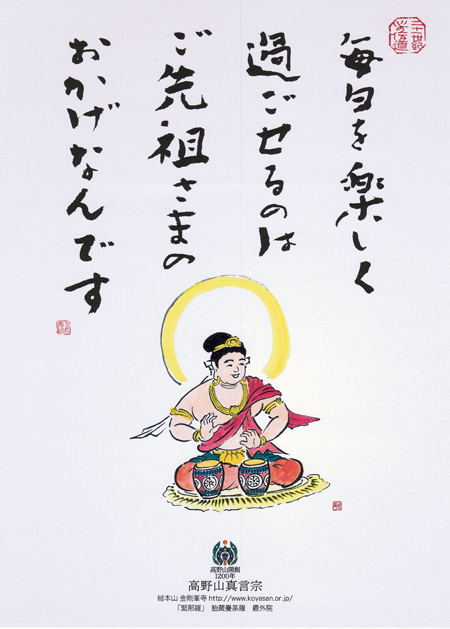 毎日を楽しく
過ごせるのは
ご先祖さまの
おかげなんです
高野山開創
1200年
高野山真言宗
総本山 金剛峯寺 http://www.koyasan.or.jp/
「緊那羅」 胎蔵曼荼羅 最外院